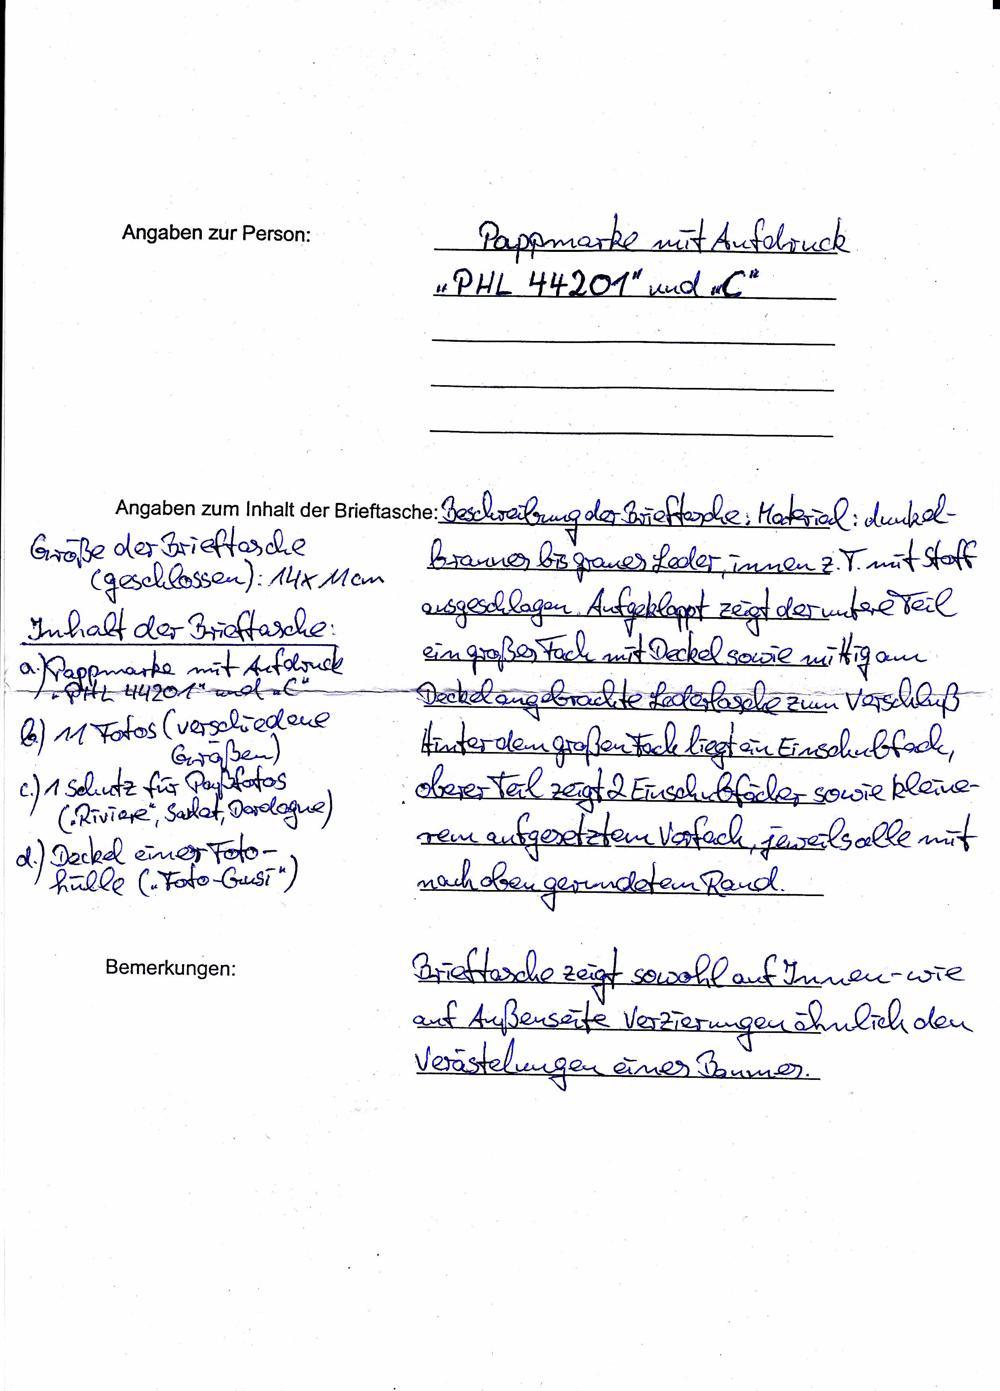 Angaben zur Person:
Pappmarke mit Aufdruck
„PHL 44201" und „C"
Angaben zum Inhalt der Brieftasche:
Beschreibung der Brieftasche: Material: dunkel-
brauner bis graues Leder, innen z.T. mit Stoff
ausgeschlagen. Aufgeklappt zeigt der untere Teil
ein großes Fach mit Deckel sowie mittig am
Deckel angebrachte Lederlasche zum Verschluß
Hinter dem großen Fach liegt ein Einschubfach,
oberer Teil zeigt 2 Einschubfächer sowie kleine-
rem aufgesetztem Vorfach, jeweils alle mit
nach oben gerundetem Rand.
Größe der Brieftasche
(geschlossen): 14x11cm
Inhalt der Brieftasche:
a.) Pappmarke mit Aufdruck
„PHL 44201" und „C"
b.) 11 Fotos (verschiedene
Größen)
c.) 1 Schutz für Paßfotos
(„Riviere", Sarlat, Dordogne)
d.) Deckel einer Foto-
hülle („Foto-Gusi")
Bemerkungen:
Brieftasche zeigt sowohl auf Innen- wie
auf Außenseite Verzierungen ähnlich den
Verästelungen eines Baumes.